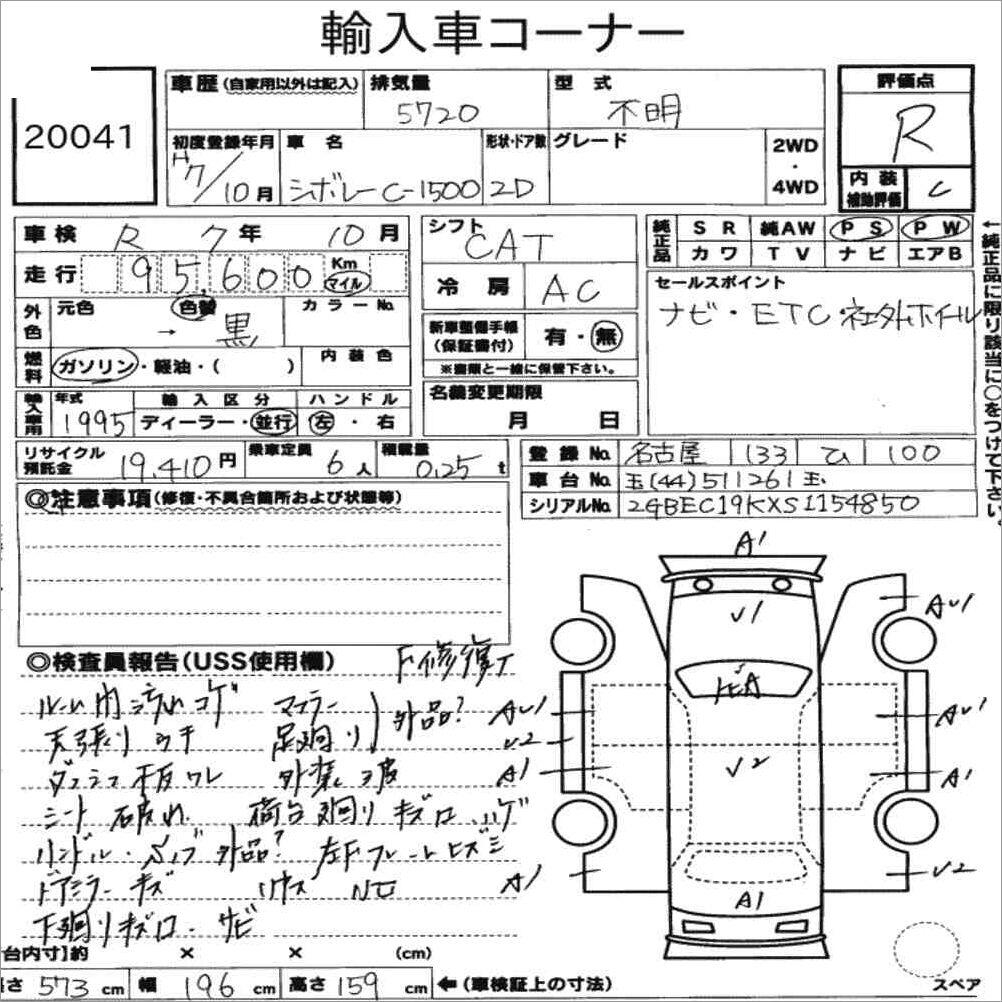 輸入車コーナー
20041
車歴 (自家用以外は記入) 排気量 5720 型式 不明 評価点 R
初度登録年月 H7/10月 車名 シボレーC-1500 形状・ドア数 2D グレード 2WD・4WD 内装補助評価 C
車検 R 7年 10月
走行 95,600 Km マイル
外色 元色 → 色替 黒 カラーNo.
燃料 ガソリン・軽油・( ) 内装色
輸入車用 年式 1995 輸入区分 ディーラー・並行 ハンドル 左・右
リサイクル預託金 19,410円 乗車定員 6人 積載量 0.25t
シフト CAT
冷房 AC
新車整備手帳(保証書付) 有・無
※書類と一緒に保管下さい。
名義変更期限 月 日
純正品 SR 純AW PS PW
カワ TV ナビ エアB
セールスポイント
ナビ・ETC・社外ホイール
←純正品に限り該当に○をつけて下さい。
登録No. 名古屋 133 ひ 100
車台No. 玉(44)511261玉
シリアルNo. 2GBEC19KXS1154850
◎注意事項(修復・不具合箇所および状態等)
◎検査員報告(USS使用欄) F修復T
ルーム内 汚れ コゲ マフラー
天張り ウチ 足廻り 外品?
ダッシュ板ワレ
シート 破れ 荷台廻り キズ ハゲ
ハンドル・ 外品? 左Fフレームヒズミ
ドアミラーキズ リヤガラス NG
下廻りキズ サビ
A1
V1
AU1
AU1
AU1
V2
A1
V2
A1
A1
A1
V2
スペア
台内寸】約 × × (cm)
長さ 573 cm 幅 196 cm 高さ 159 cm ←(車検証上の寸法)